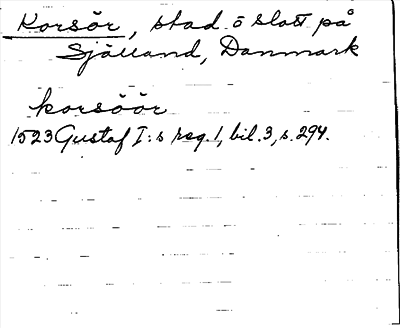 Korsör, stad ō slott på
Själland, Danmark
korsöör
1523 Gustaf I:s reg. 1, bil. 3, s. 294.